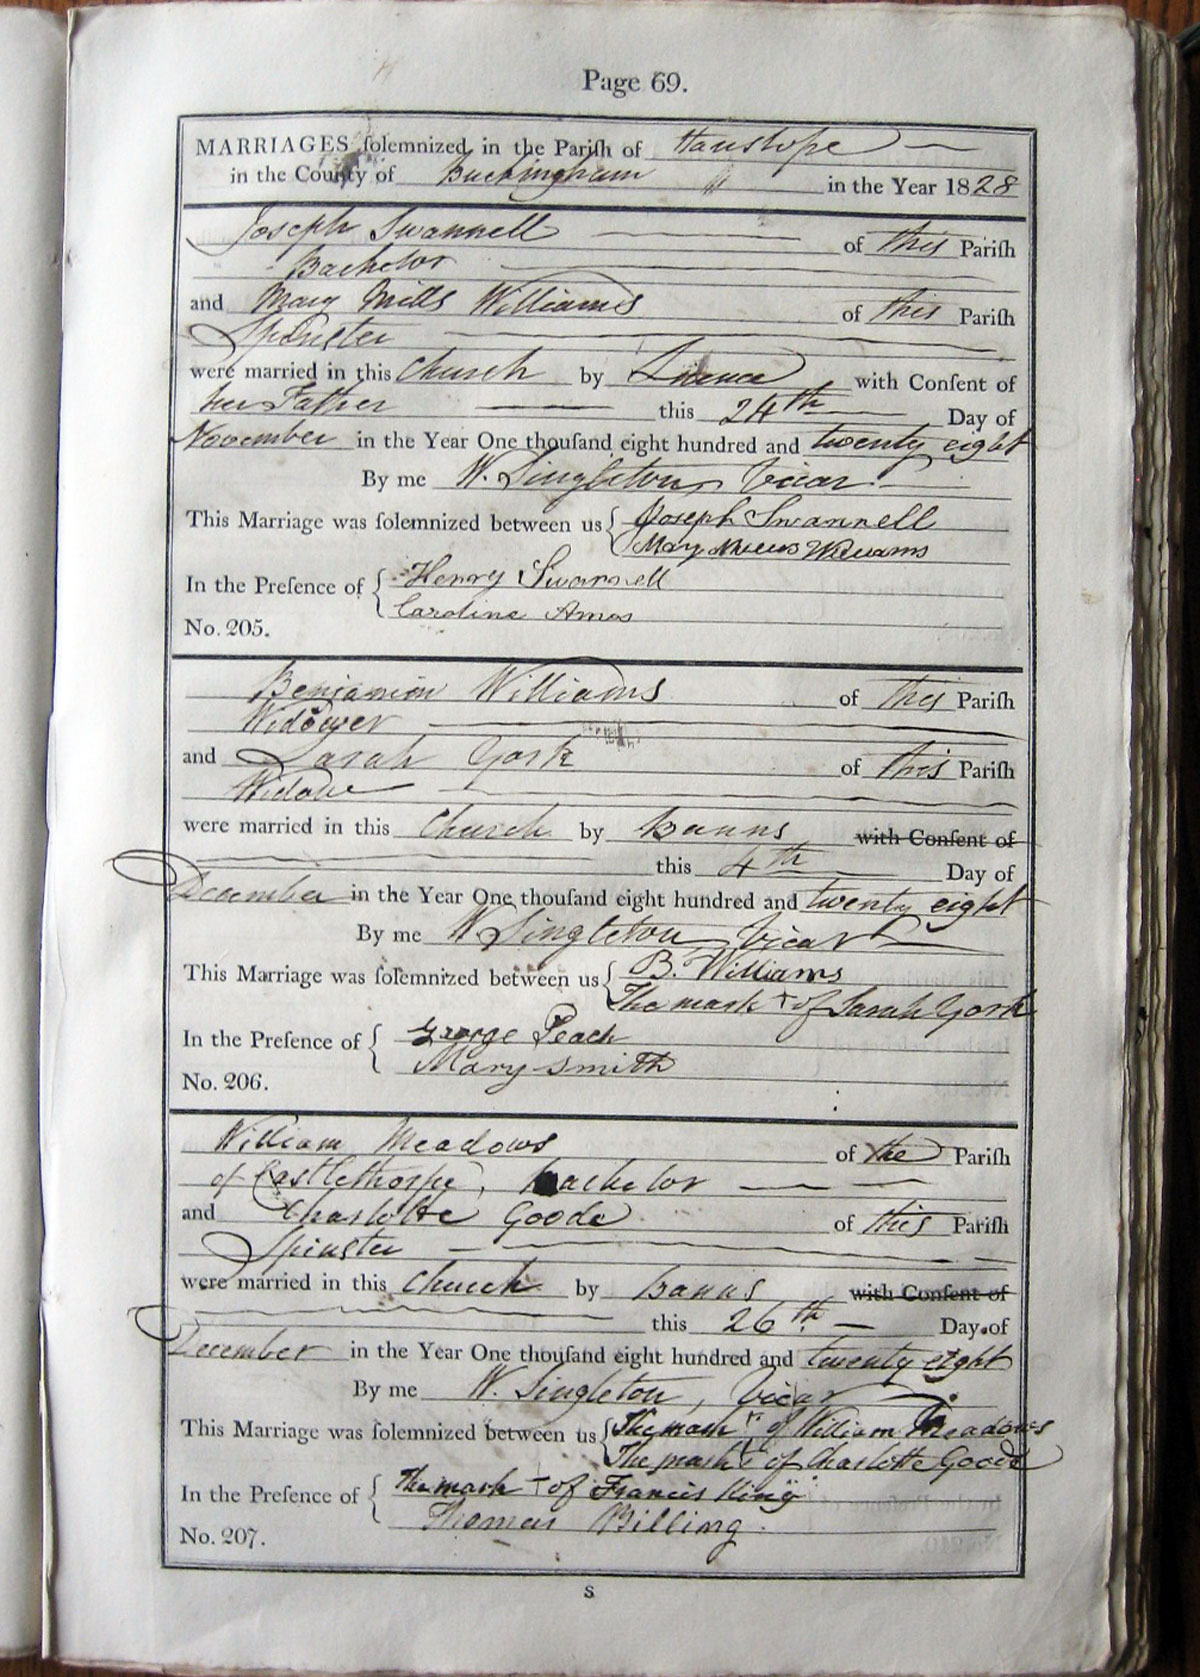 Page 69.
MARRIAGES ſolemnized in the Pariſh of Hanslope
in the County of Buckingham in the Year 1828
Joseph Swannell of this Pariſh
Bachelor
and Mary Mills Williams of this Pariſh
Spinster
were married in this Church by Licence with Conſent of
her Father this 24th Day of
November in the Year One thouſand eight hundred and twenty eight
By me W. Singleton, Vicar
This Marriage was ſolemnized between us { Joseph Swannell
Mary Mills Williams
In the Preſence of { Henry Swannell
Caroline Amos
No. 205.
Benjamin Williams of this Pariſh
Widower
and Sarah York of this Pariſh
Widow
were married in this Church by Banns with Conſent of
this 4th Day of
December in the Year One thouſand eight hundred and twenty eight
By me W. Singleton, Vicar
This Marriage was ſolemnized between us { B. Williams
The mark + of Sarah York
In the Preſence of { George Peach
Mary Smith
No. 206.
William Meadows of the Pariſh
of Castlethorpe, Bachelor
and Charlotte Goode of this Pariſh
Spinster
were married in this Church by Banns with Conſent of
this 26th Day of
December in the Year One thouſand eight hundred and twenty eight
By me W. Singleton, Vicar
This Marriage was ſolemnized between us { The mark + of William Meadows
The mark + of Charlotte Goode
In the Preſence of { The mark + of Francis King
Thomas Billing.
No. 207.
S